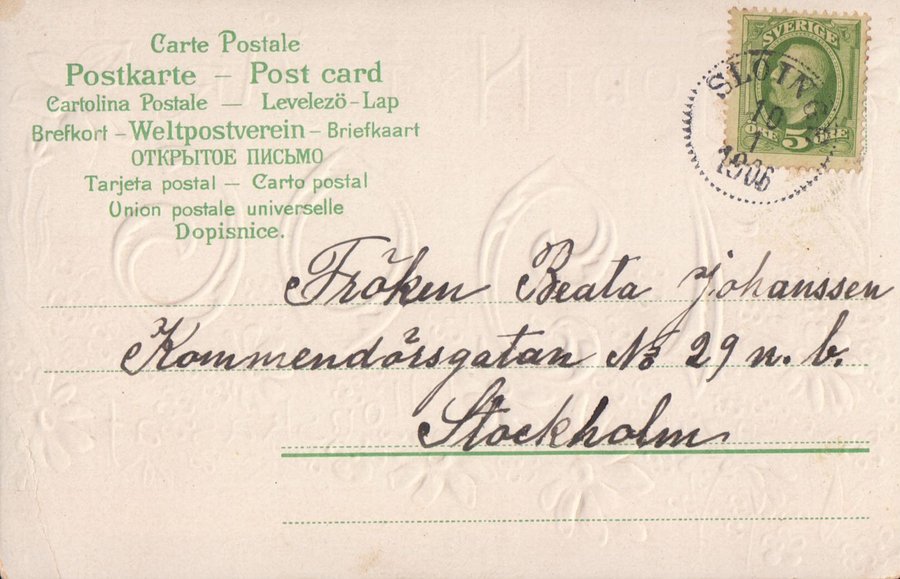 Carte Postale
Postkarte – Post card
Cartolina Postale — Levelező-Lap
Brefkort – Weltpostverein – Briefkaart
ОТКРЫТОЕ ПИСЬМО
Tarjeta postal — Carto postal
Union postale universelle
Dopisnice.
SVERIGE
ÖRE 5 ÖRE
10
1
1906
Fröken Beata Johanssen
Kommendörsgatan No 29 n. b.
Stockholm